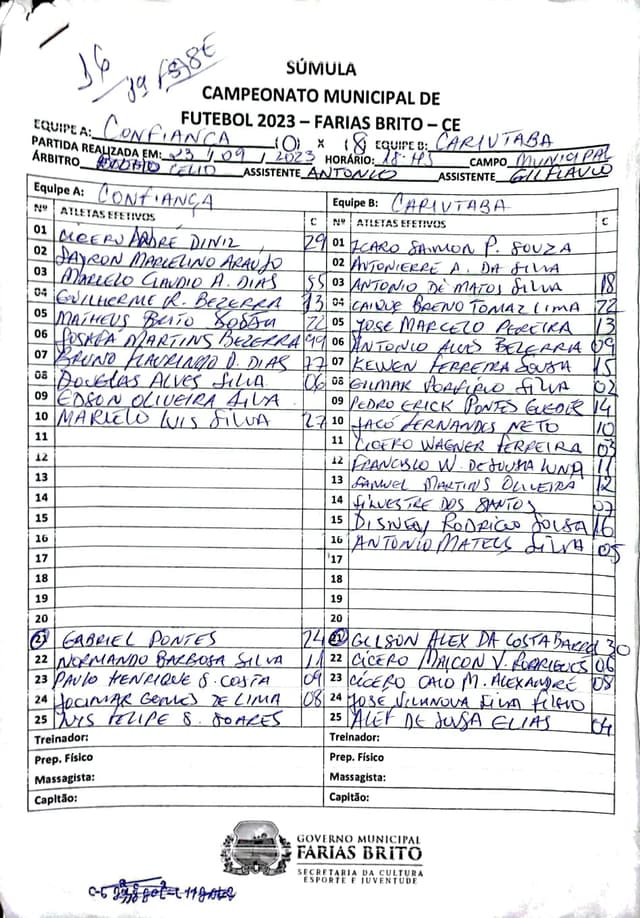 1ª FASE
SÚMULA
CAMPEONATO MUNICIPAL DE
FUTEBOL 2023 – FARIAS BRITO – CE
EQUIPE A: CONFIANÇA (0) X (8 EQUIPE B: CARIUTABA
PARTIDA REALIZADA EM: 23 / 09 / 2023 HORÁRIO: CAMPO MUNICIPAL
ÁRBITRO CELIO ASSISTENTE ANTONIO ASSISTENTE GILFLAVIO
Equipe A: CONFIANÇA
Nº ATLETAS EFETIVOS C
01 CICERO ANDRÉ DINIZ 29
02 DAYRON MARCELINO ARAUJO
03 MARCELO CLAUDIO A. DIAS 55
04 GUILHERME R. BEZERRA 13
05 MATHEUS BRITO 22
06 MARTINS BEZERRA 99
07 BRUNO D. DIAS 77
08 DOUGLAS ALVES SILVA 06
09 EDSON OLIVEIRA SILVA
10 MARCELO LUIS SILVA 27
11
12
13
14
15
16
17
18
19
20
21 GABRIEL PONTES 24
22 NORMANDO BARBOSA SILVA 11
23 PAULO HENRIQUE S. COSTA 09
24 JOCIMAR GOMES DE LIMA 08
25 LUIS FELIPE S. SOARES
Treinador:
Prep. Físico
Massagista:
Capitão:
Equipe B: CARIUTABA
Nº ATLETAS EFETIVOS C
01 ICARO SAIMON P. SOUZA
02 ANTONIERRE A. DA SILVA
03 ANTONIO DE MATOS SILVA 18
04 CAIQUE BRENO TOMAZ LIMA 22
05 JOSE MARCELO PEREIRA 13
06 ANTONIO ALVES BEZERRA 09
07 KEWEN FERREIRA SOUSA 15
08 GILMAR PORFIRIO SILVA 02
09 PEDRO ERICK PONTES 14
10 JACÓ FERNANDES NETO 10
11 CICERO WAGNER FERREIRA 03
12 FRANCISCO W. DE SOUSA LUNA 11
13 SAMUEL MARTINS OLIVEIRA 12
14 SILVESTRE DOS SANTOS 07
15 DISNEY RODRIGO SOUSA 16
16 ANTONIO MATEUS SILVA 05
17
18
19
20
21 GILSON ALEX DA COSTA 30
22 CÍCERO MAICON V. RODRIGUES 06
23 CÍCERO CAIO M. ALEXANDRE 08
24 JOSE VILANOVA SILVA FILHO
25 ALEF DE SOUSA ELIAS 04
Treinador:
Prep. Físico
Massagista:
Capitão:
GOVERNO MUNICIPAL
FARIAS BRITO
SECRETARIA DA CULTURA
ESPORTE E JUVENTUDE